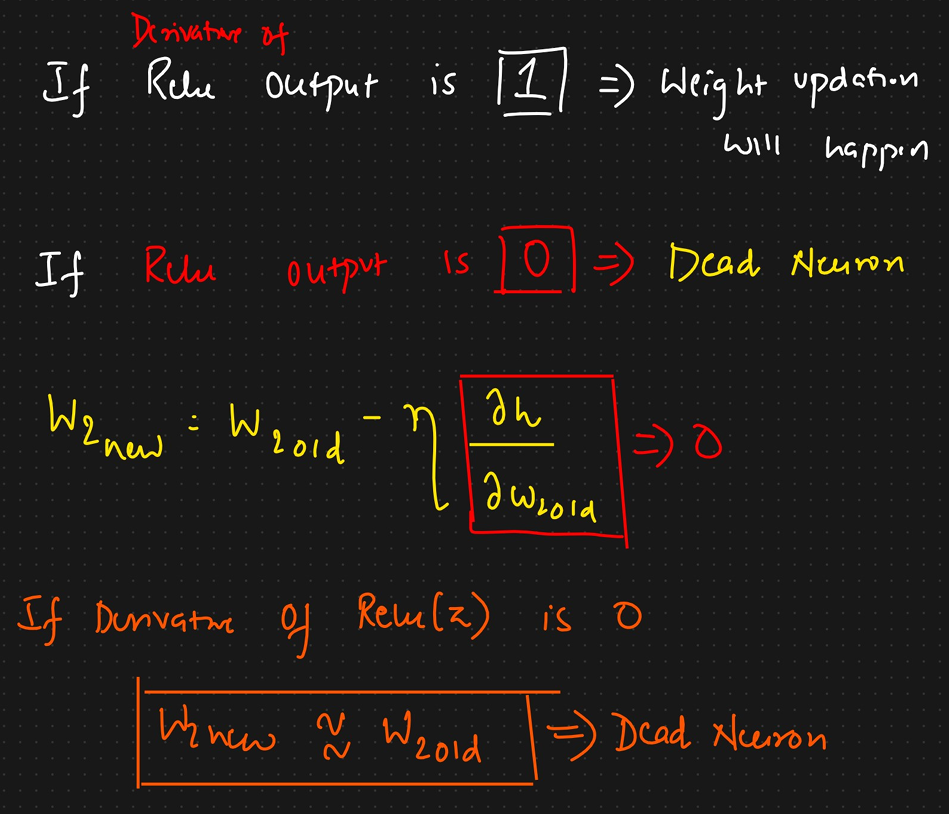 Derivative of
If Relu output is 1 => Weight updation
will happen
If Relu output is 0 => Dead Neuron
W₂new = W₂old - η ∂h/∂w₂old => 0
If Derivative of Relu(z) is 0
W₂new ≈ W₂old => Dead Neuron